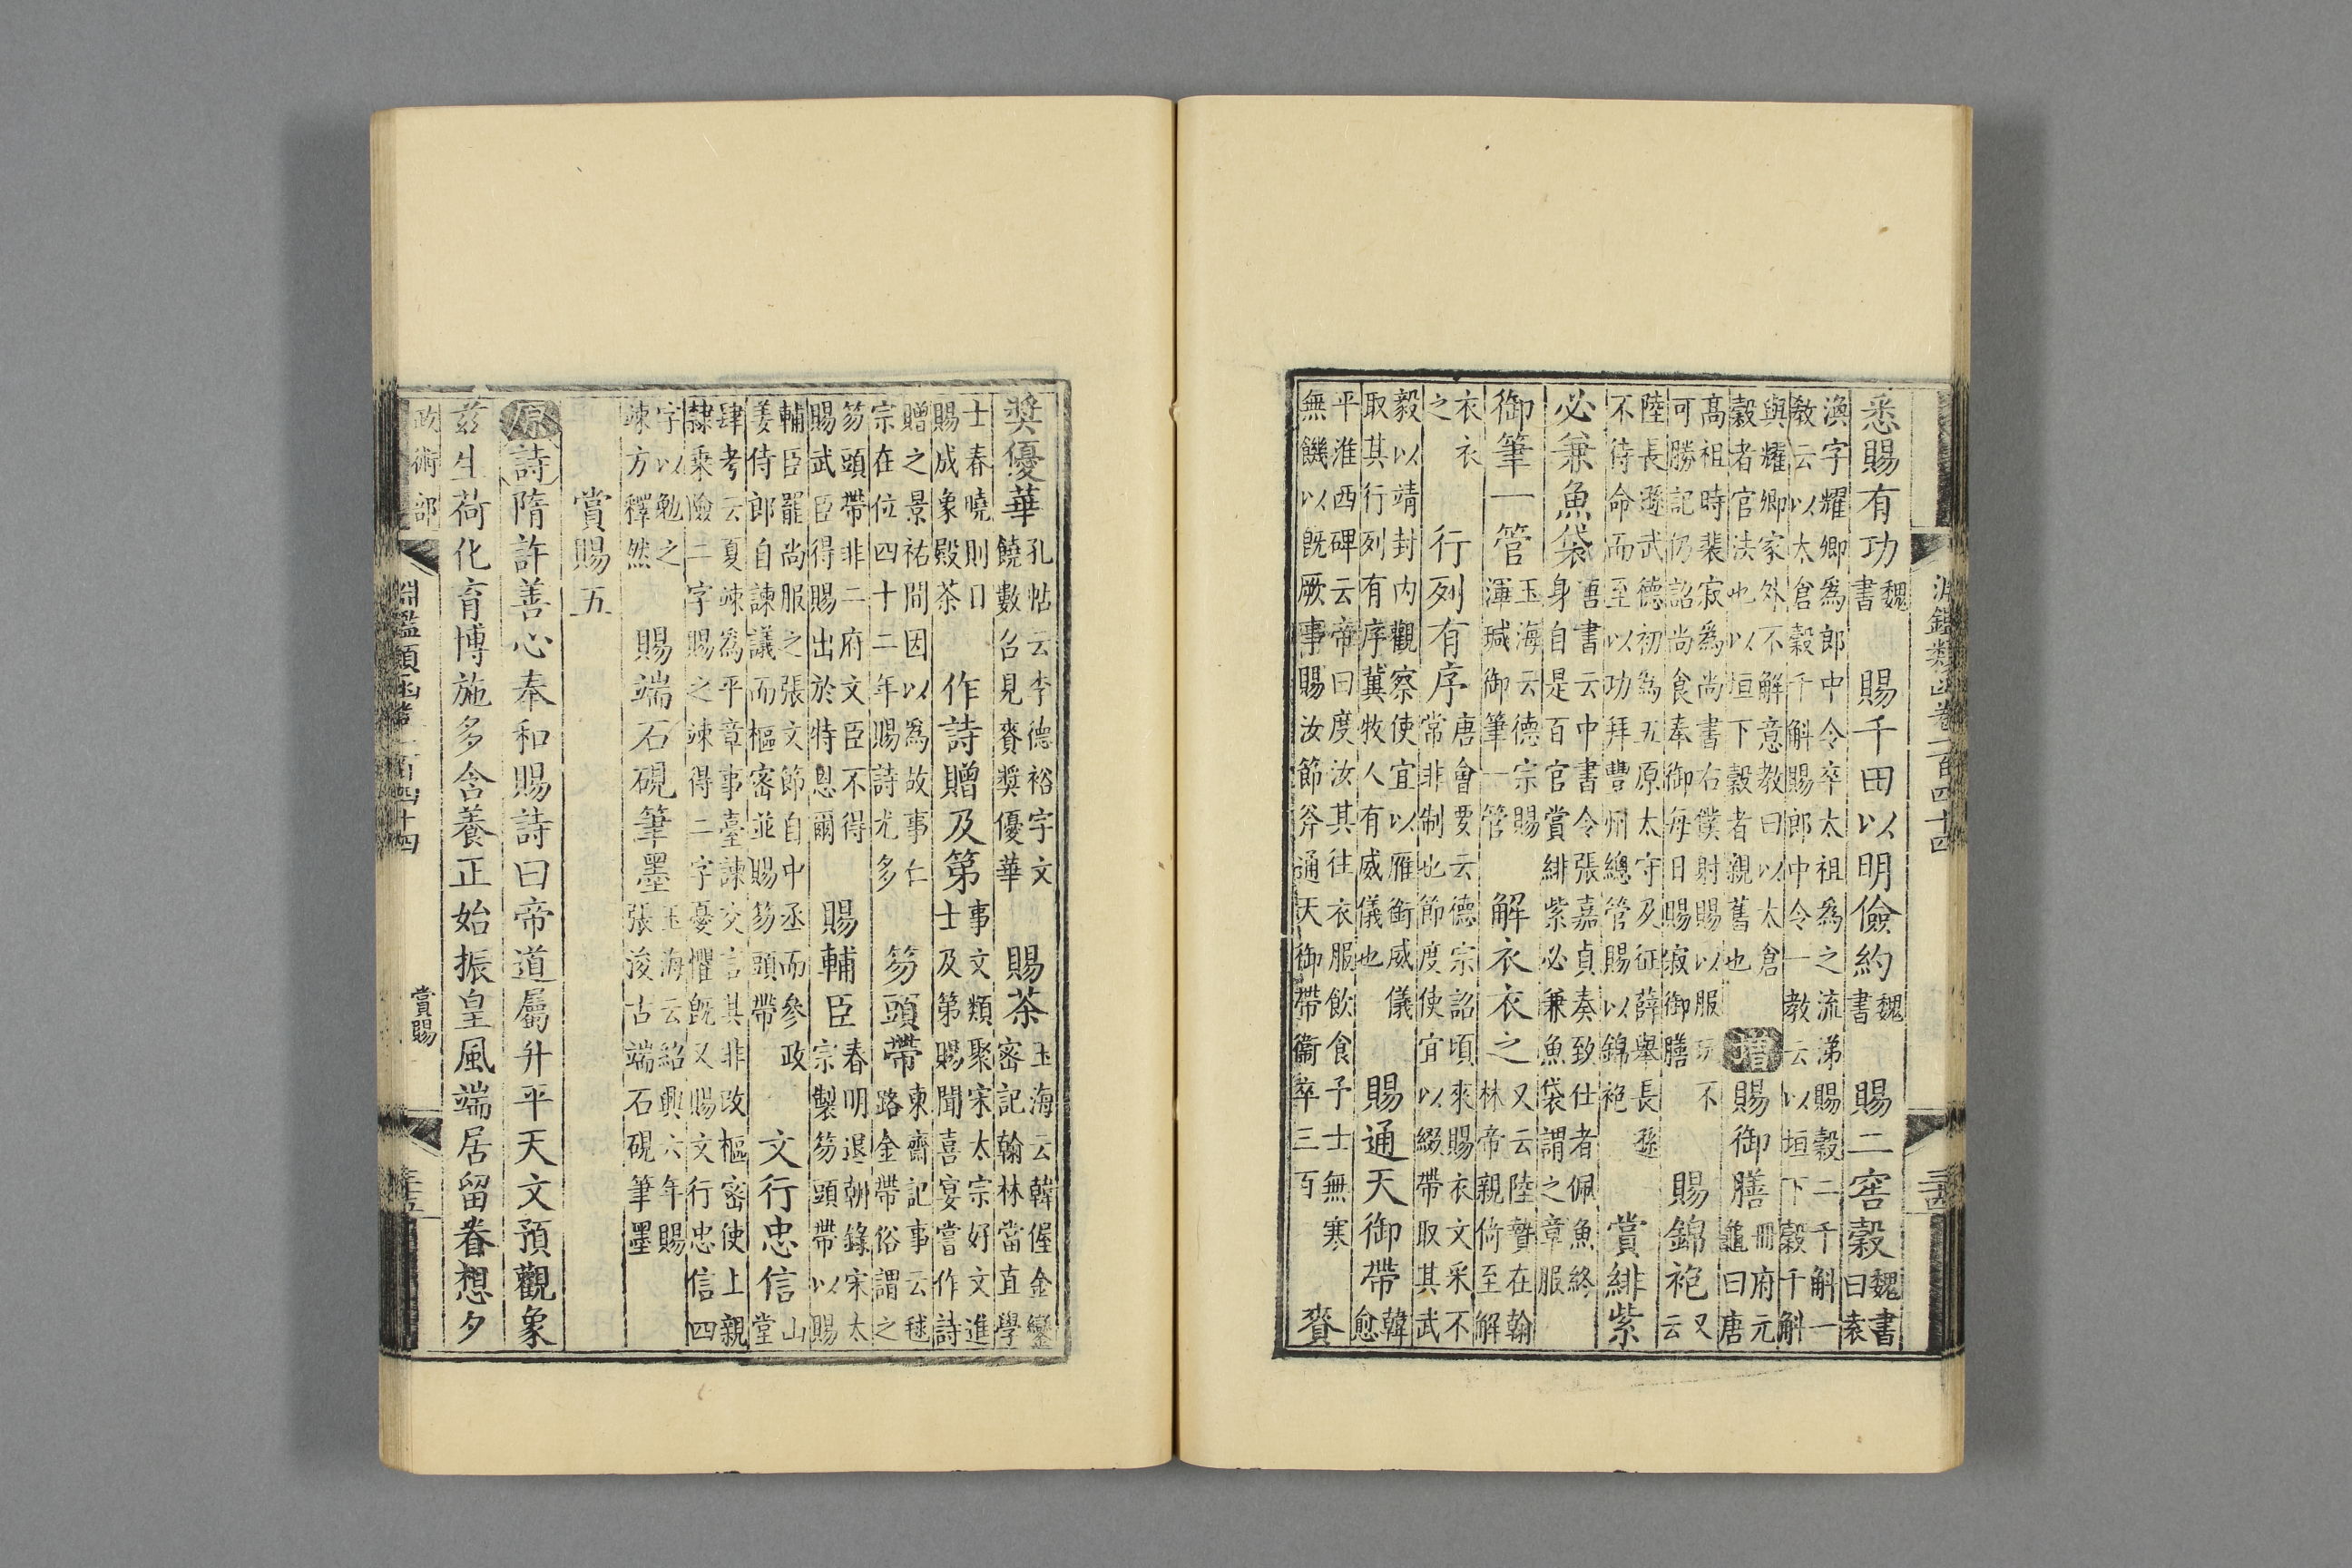 淵鑑類函卷二百四十四
悉賜有功
魏
書
賜千田以明儉約
魏
書
賜二窖穀
魏書
曰袁
渙字耀卿為郎中令卒太祖為之流涕賜穀二千斛一
教云以太倉穀千斛賜郎中令一教云以垣下穀千斛
與耀卿家外不解意教曰以太倉
穀者官法也以垣下穀者親舊也
增
賜御膳
冊府元
龜曰唐
高祖時裴寂為尚書右僕射賜以服玩不
可勝記仍詔尚食奉御每日賜寂御膳
賜錦袍
又
云
陸長遜武德初為五原太守及征薛舉長遜
不待命而至以功拜豐州總管賜以錦袍
賞緋紫
必兼魚袋
唐書云中書令張嘉貞奏致仕者佩魚終
身自是百官賞緋紫必兼魚袋謂之章服
御筆一管
玉海云德宗賜
渾瑊御筆一管
解衣衣之
又云陸贄在翰
林帝親倚至解
衣衣
之
行列有序
唐會要云德宗詔頃來賜衣文采不
常非制也節度使宜以綴帶取其武
毅以靖封内觀察使宜以雁銜威儀
取其行列有序冀牧人有威儀也
賜通天御帶
韓
愈
平淮西碑云帝曰度汝其往衣服飲食子士無寒
無饑以既厥事賜汝節斧通天御帶衞卒三百
賚
奬優華
孔帖云李德裕字文
饒數召見賚奬優華
賜茶
玉海云韓偓金鑾
密記翰林當直學
士春曉則日
賜成象殿茶
作詩贈及第
事文類聚宋太宗好文進
士及第賜聞喜宴嘗作詩
贈之景祐間因以為故事仁
宗在位四十二年賜詩尤多
笏頭帶
東齋記事云毬
路金帶俗謂之
笏頭帶非二府文臣不得
賜武臣得賜出於特恩爾
賜輔臣
春明退朝錄宋太
宗製笏頭帶以賜
輔臣罷尚服之張文節自中丞而參政
姜侍郎自諫議而樞密並賜笏頭帶
文行忠信
山
堂
肆考云夏竦為平章事臺諫交言其非改樞密使上親
隸乘險二字賜之竦得二字憂懼既又賜文行忠信四
字以勉之
竦方釋然
賜端石硯筆墨
玉海云紹興六年賜
張浚古端石硯筆墨
賞賜五
原
詩隋許善心奉和賜詩曰帝道屬升平天文預觀象
兹生荷化育博施多含養正始振皇風端居留眷想夕
政術部
淵鑑類函卷二百四十四
賞賜